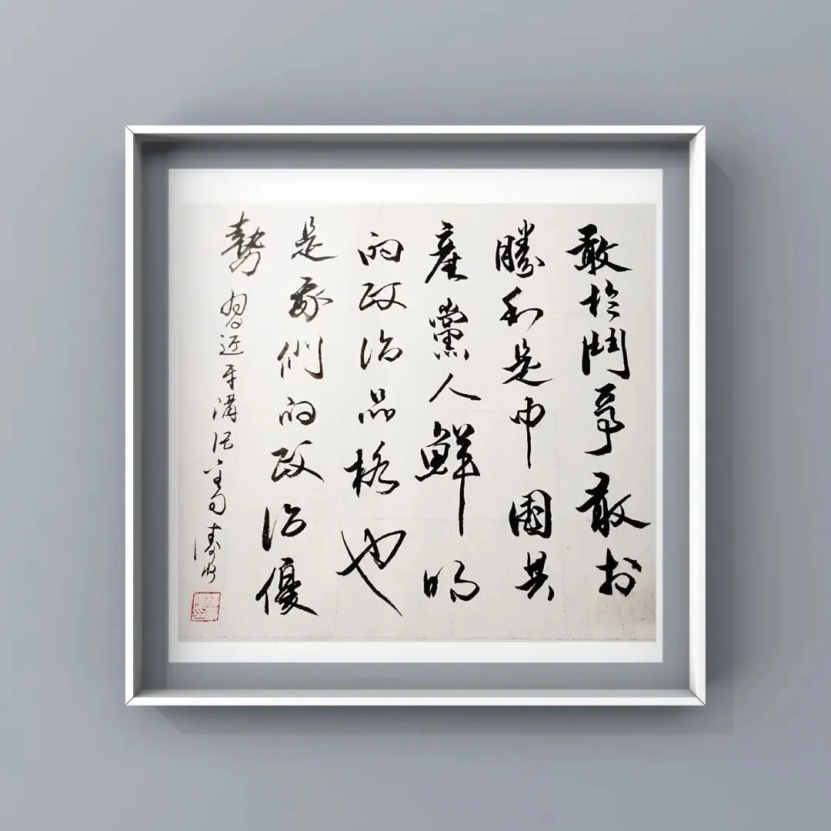 敢於鬥爭敢於
勝利是中國共
產黨人鮮明
的政治品格也
是我們的政治優
勢 習近平講話金句